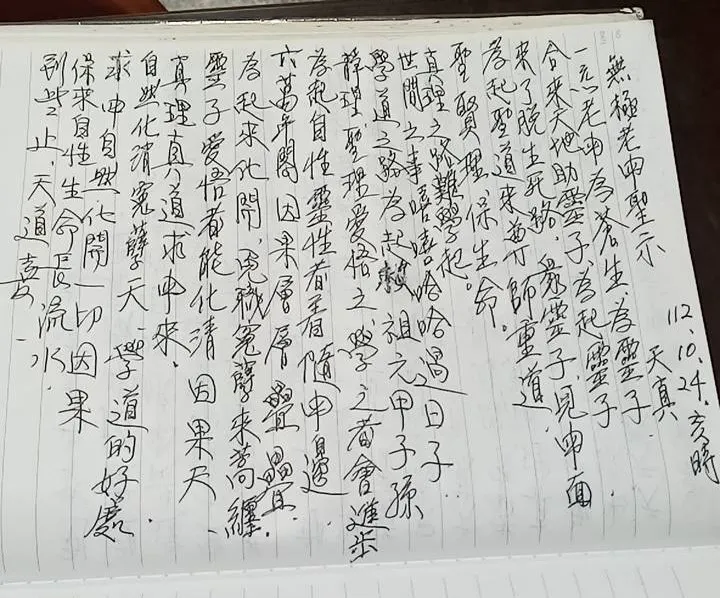 112.10.24.亥時
天真
無極老申聖示
一六老申為蒼生為靈子
合來天地助靈子為起靈子
來了脫生死路.眾靈子見申面
為起聖道來尊師重道.
聖賢理保生命.
真理之路難學起.
世間之事嘻嘻哈哈過日子.
學道之路為起救祖元甲子孫
靜理聖理愛悟之學之者會進步
為起自性靈性者者隨申邊
六萬年間因果層層疊疊.
為起來化開.冤職冤孽來蒿纏.
靈子愛悟者能化清因果天.
真理真道求申來.
自然化消冤孽天.學道的好處.
求申自然化開一切因果
保來自性生命長流水.
到此止.天道喜.